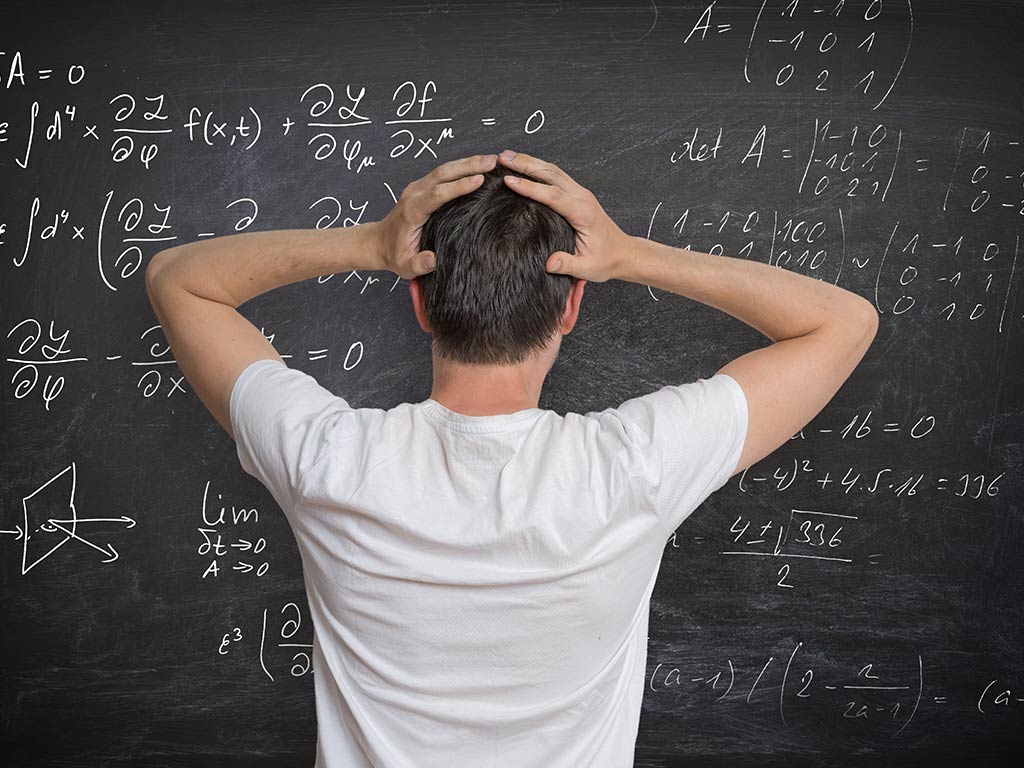 A = 0
∫d⁴x ∂ℒ/∂φ f(x,t) + ∂ℒ/∂φ_μ ∂f/∂x^μ = 0
∫d⁴x (∂ℒ/∂
∂ℒ/∂φ - = 0
lim
δt→0
A→0
ε³ (∂
A = 1 -1 0
-1 0 1
0 2 1
det A = |1 -1 0
-1 0 1
0 2 1| =
(1 -1 0 | 100
010
~ (1 -1 0
0 -1 1
0 0 1
- 16 = 0
(-4)² + 4.5.16 = 336
= 4±√336 / 2 =
(a-1) / (2 - 2/2a-1) = (a-